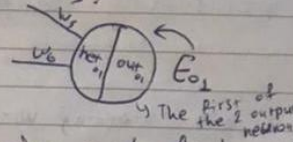 w5
w6
net o1
out o1
Eo1
↳ The first of
the 2 output
neurons